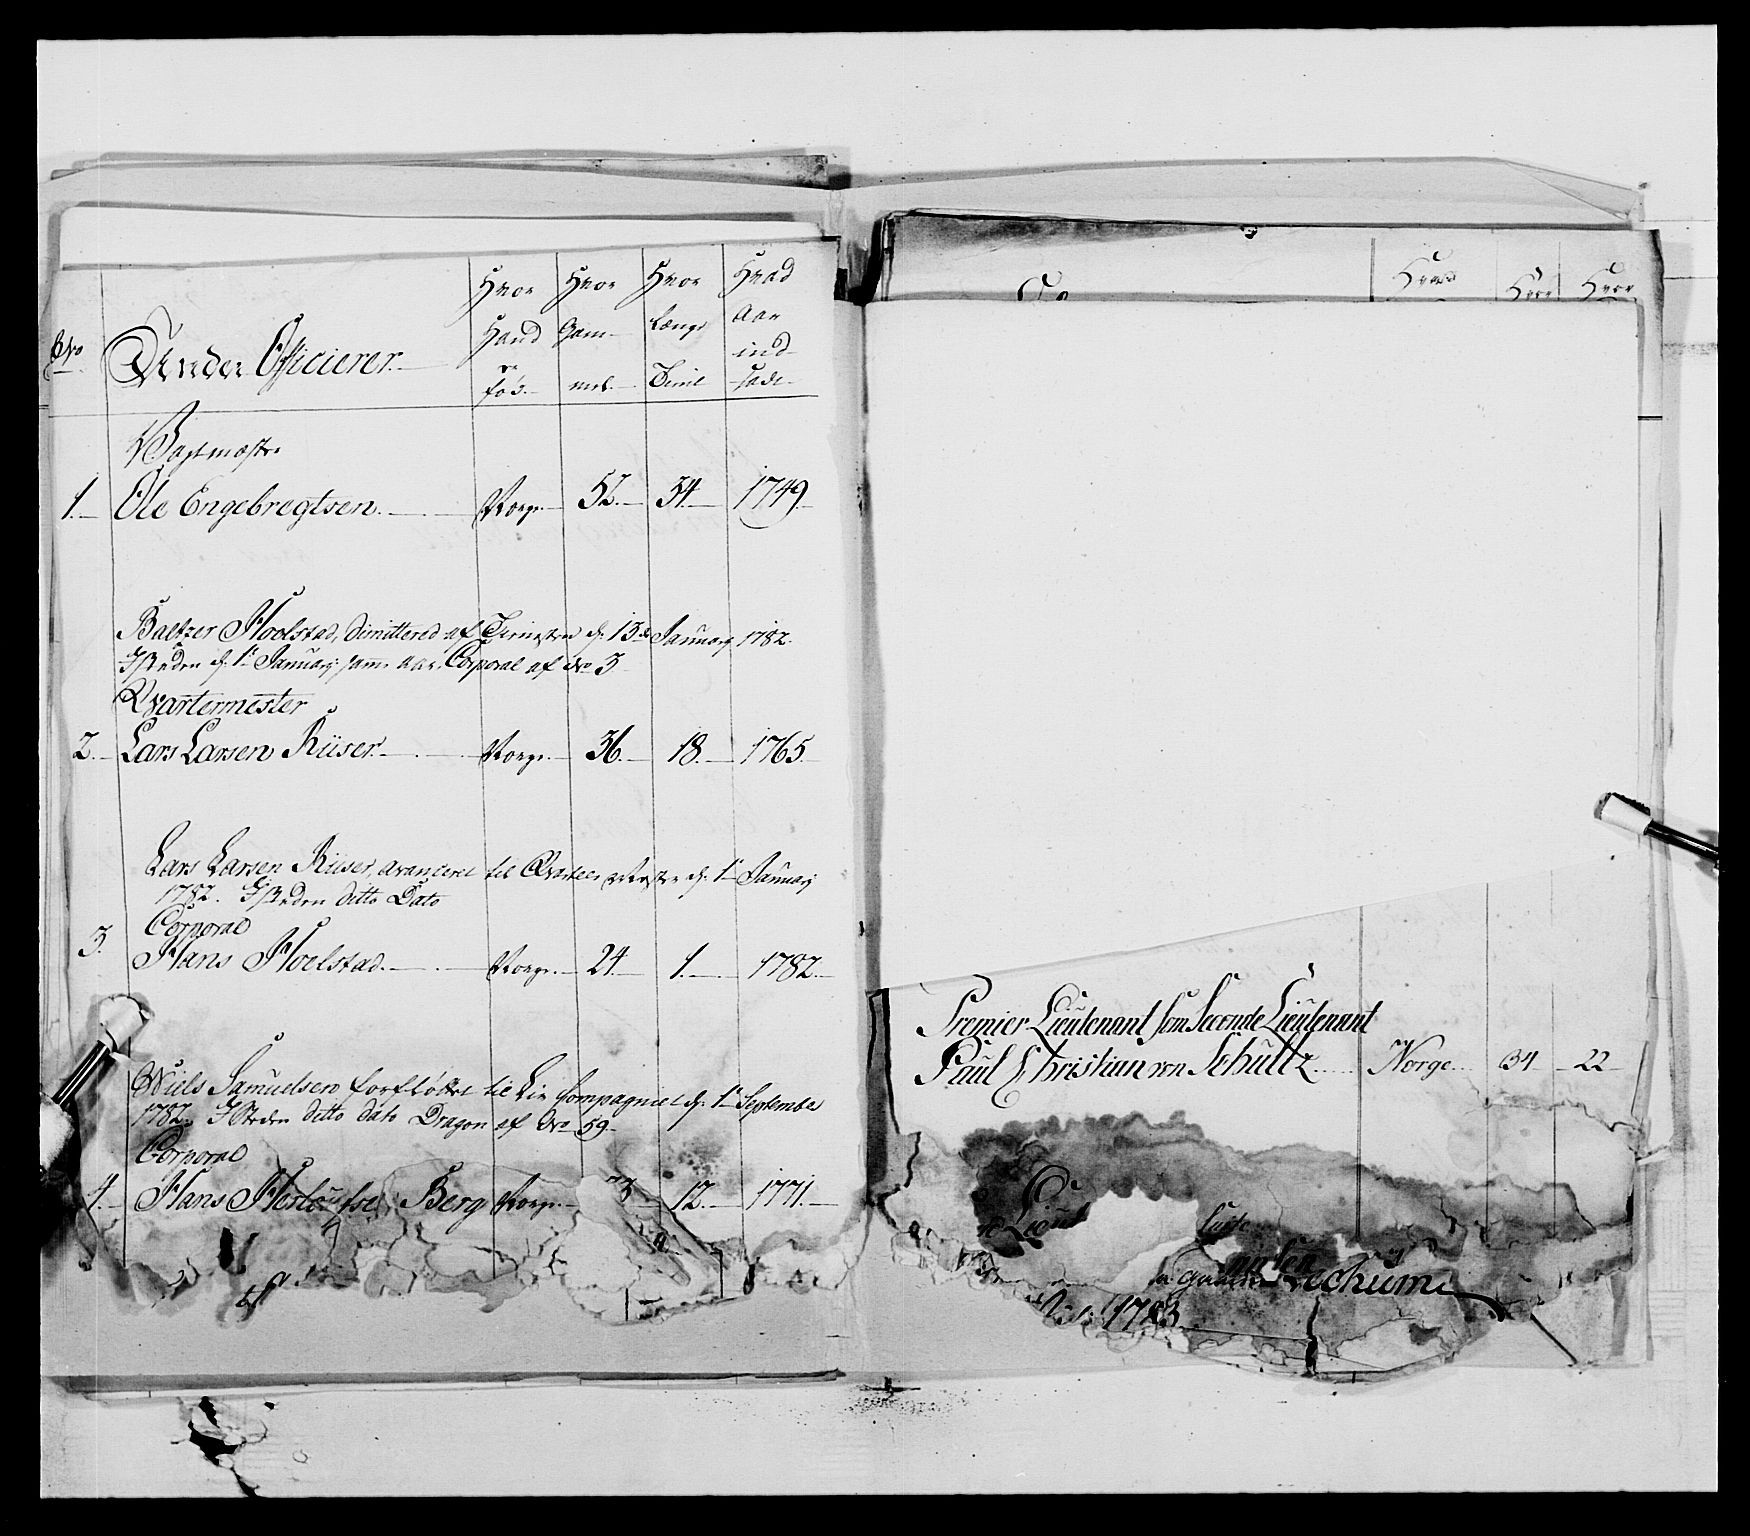 No
Under Officierer
Hvor Land er fød
Hvor Gammel
Hvor Længe Tient
Hvad Aar indsadt
Wagtmester
1. Ole Engebregtsen. Norge. 52. 34. 1749.
Baltzer Hoelstad, dimittered af Tienesten d. 13de January 1782.
I Steden d. 1te January samme Aar. Corporal af No 3
Qvartermester
2. Lars Larsen Riiser. Norge. 36. 18. 1765.
Lars Larsen Riiser, avanceret til Qvarteer Mester d. 1te January
1782. I Steden ditto Dato
Corporal
3. Hans Hoelstad. Norge. 24. 1. 1782.
Niels Samuelsen forfløttet til Liv Compagniet d. 1te September
1782. I Steden ditto dato Dragon af No 59.
Corporal
4. Hans Berg Norge. 12. 1771.
Hvad
Hvor
Hvor
Premier Lieutenant som Seconde Lieutenant
Paul Christian von Schultz Norge 34 22
Lieut
1783